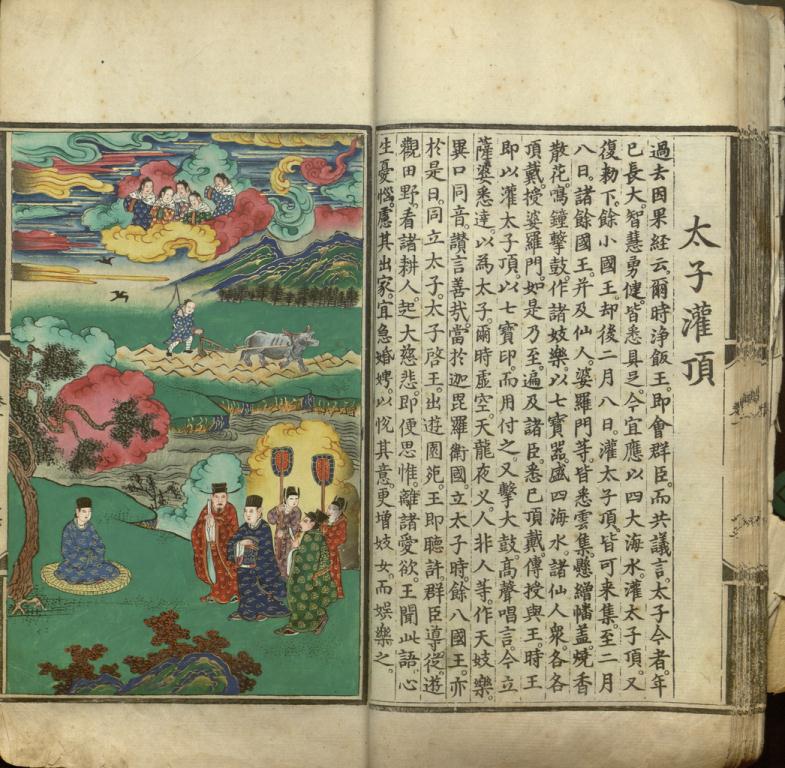 太子灌頂
過去因果経云。爾時淨飯王。即會群臣。而共議言。太子今者。年
已長大。智慧勇健。皆悉具足。今宜應以四大海水。灌太子頂。又
復勅下。餘小國王。却後二月八日。灌太子頂。皆可来集。至二月
八日。諸餘國王。并及仙人。婆羅門等。皆悉雲集。懸繒幡蓋。燒香
散花。鳴鐘擊鼓。作諸妓樂。以七寶器。盛四海水。諸仙人衆。各各
頂戴。授婆羅門。如是乃至。遍及諸臣。悉已頂戴。傳授與王。時王
即以灌太子頂。以七寶印。而用付之。又擊大鼓。高聲唱言。今立
薩婆悉達。以為太子。爾時虛空。天龍夜义。人非人等。作天妓樂。
異口同音。讚言善哉。當於迦毘羅衛國。立太子時。餘八國王。亦
於是日。同立太子。太子啓王。出遊園苑。王即聽許。群臣導從。遊
觀田野。看諸耕人。起大慈悲。即便思惟。離諸愛欲。王聞此語。心
生憂惱。慮其出家。宜急婚娉。以悅其意。更增妓女。而娛樂之。